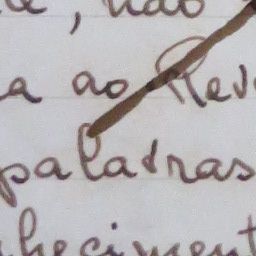 , não
a ao Rev
palavras
heciment